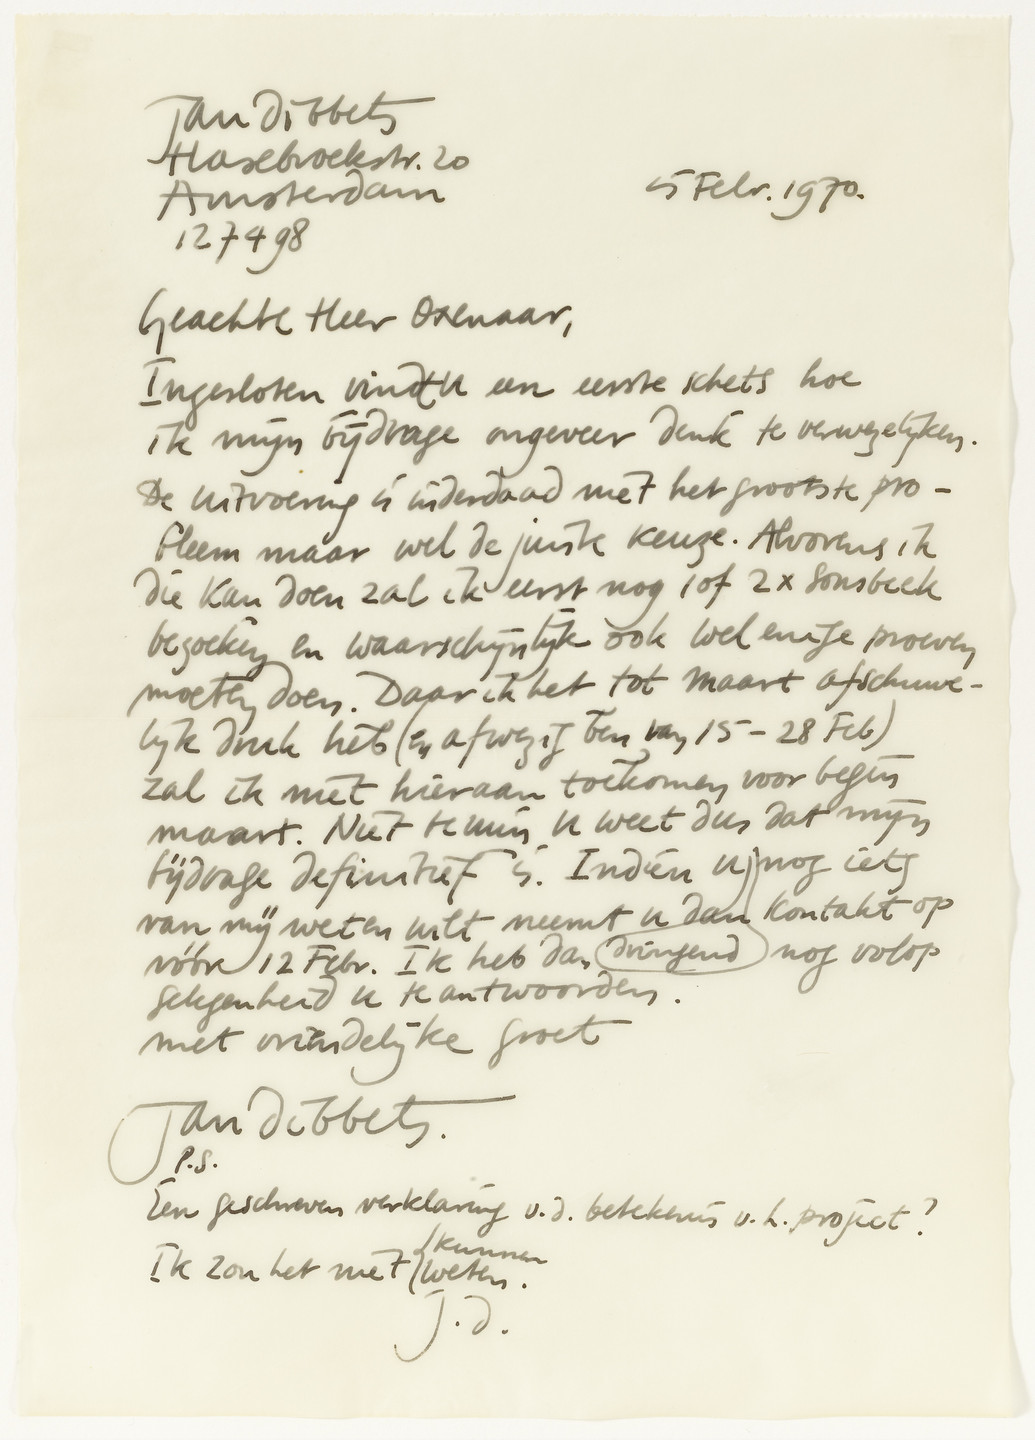 Jan Dibbets
Hasebroekstr. 20
Amsterdam
127498
5 Febr. 1970.
Geachte Heer Oxenaar,
Ingesloten vindt U een eerste schets hoe
ik mijn bijdrage ongeveer denk te verwezelijken.
De uitvoering is inderdaad niet het grootste pro-
bleem maar wel de juiste keuze. Alvorens ik
die kan doen zal ik eerst nog 1 of 2 x Sonsbeek
bezoeken en waarschijnlijk ook wel enige proeven
moeten doen. Daar ik het tot maart afschuwe-
lijk druk heb (en afwezig ben van 15 - 28 Feb)
zal ik niet hieraan toekomen voor begin
maart. Niet temin, u weet dus dat mijn
bijdrage definitief is. Indien u nog iets
van mij weten wilt neemt u dan kontakt op
vóór 12 Febr. Ik heb dan dringend nog volop
gelegenheid u te antwoorden.
met vriendelijke groet
Jan Dibbets.
P.S.
Een geschreven verklaring v.d. betekenis v.h. project?
Ik zou het niet kunnen
weten.
J.D.